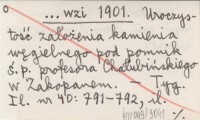 ...wzi 1901. Uroczys-
tość założenia kamienia
węgielnego pod pomnik
ś.p. profesora Chałubińskiego
w Zakopanem. — Tyg.
Il. nr 40: 791-792, il.